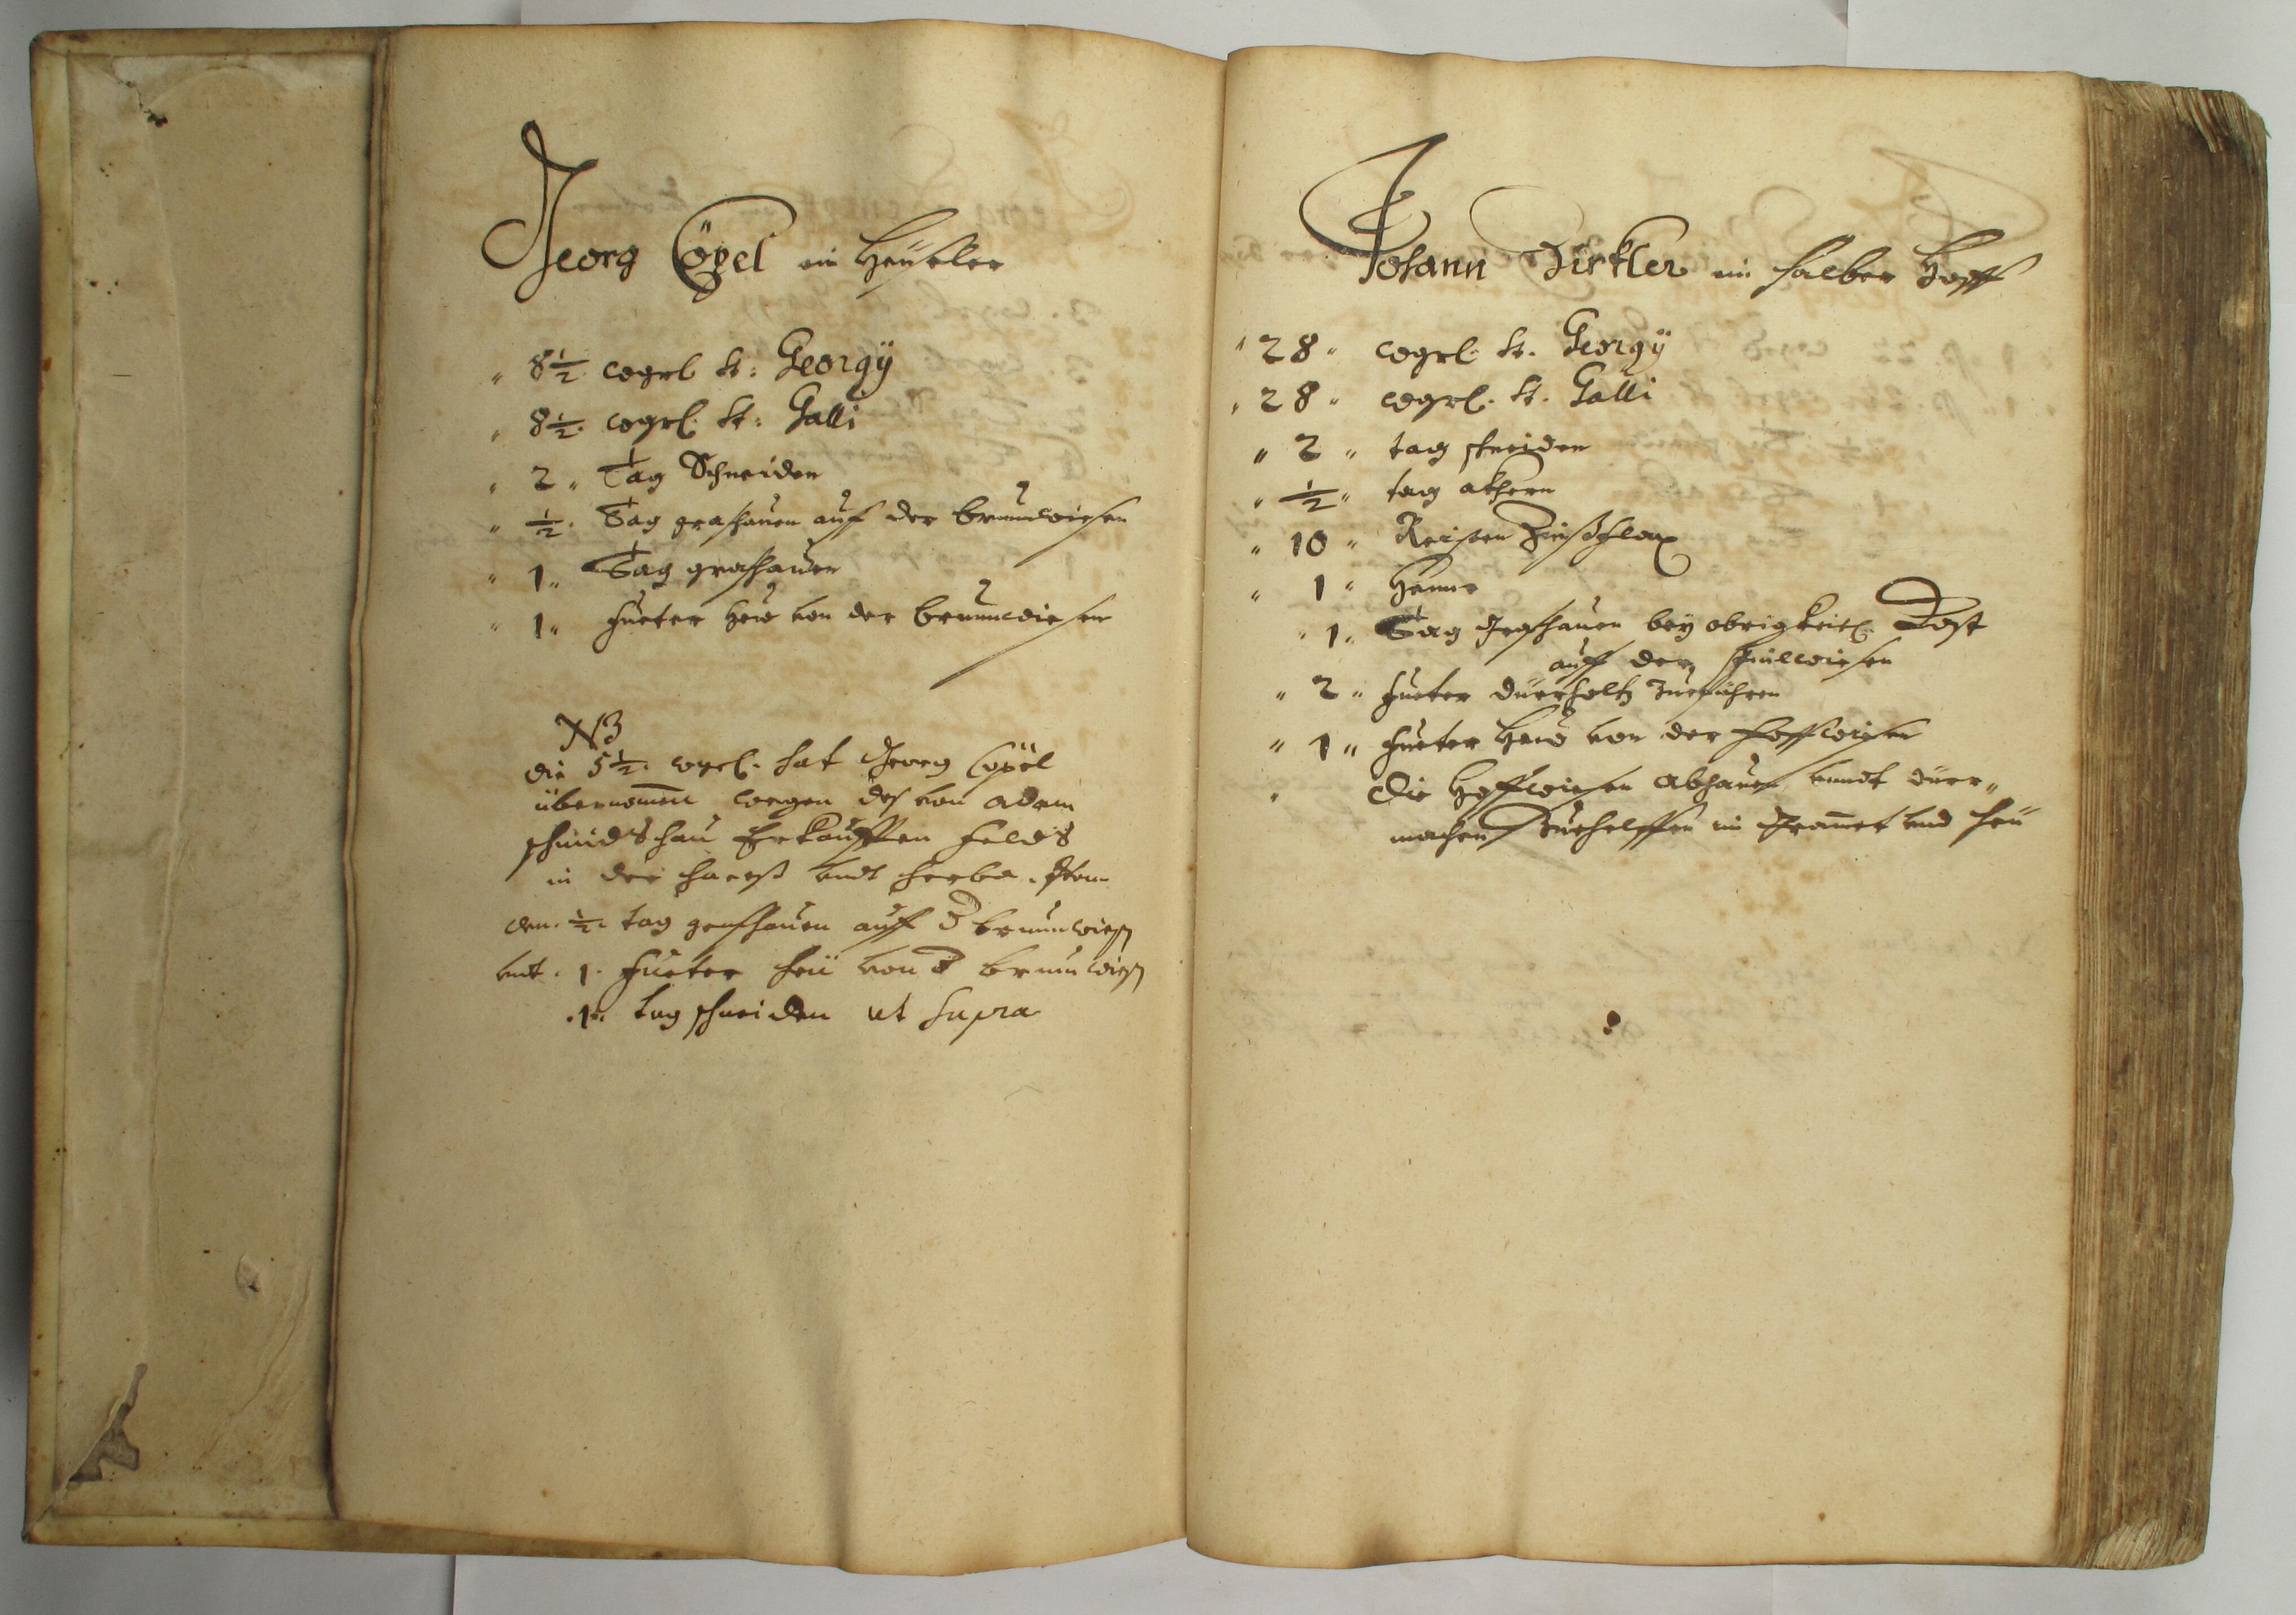 Georg Cöpel ein Heüsler
" 8½. wgrl St: Georgÿ
" 8½. wgrl. St: Galli
" 2 " Tag Schneiden
" ½. Tag grashauen auf der brunwiesen
" 1 " Tag grashauen
" 1 " fueter Hew von der brunnwiesen
NB
die 5½. wgrl. hat Georg Cöpel
übernomen wegen des von adam
schmidschau Erkaufften felds
in der vndt . Item
den. ½. tag grashauen auff d brunnwiesen
vnd . 1 . fueter heü von d brunnwiesen
.1. tag schneiden ut supra
Johann Zirkler ein halber Hoff
" 28 " wgrl. St. Georgÿ
" 28 " wgrl. St. Galli
" 2 " tag schneiden
" ½ " tag akhern
" 10 " Reisten Zinßflax
" 1 " Henne
" 1 " Tag Grashauen beÿ obrigkeitl. Kost
auff der wiesen
" 2 " fueter dürrholtz Zueführen
" 1 " fueter Hew von der Hoffwiesen
" Die Hoffwiesen abhauen vnndt dürr"
machen Zuehelffen im Gramet vnd heü